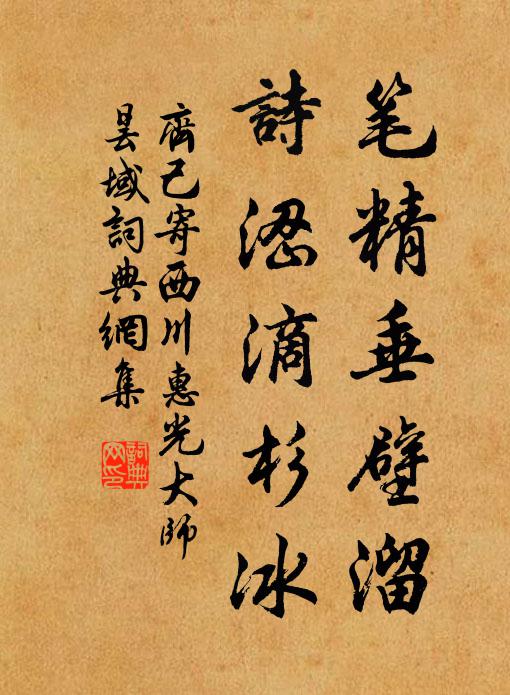 笔精垂壁溜
詩涩滴杉冰
齊己寄西川惠光大師
曇域詞典網集
詞典网印